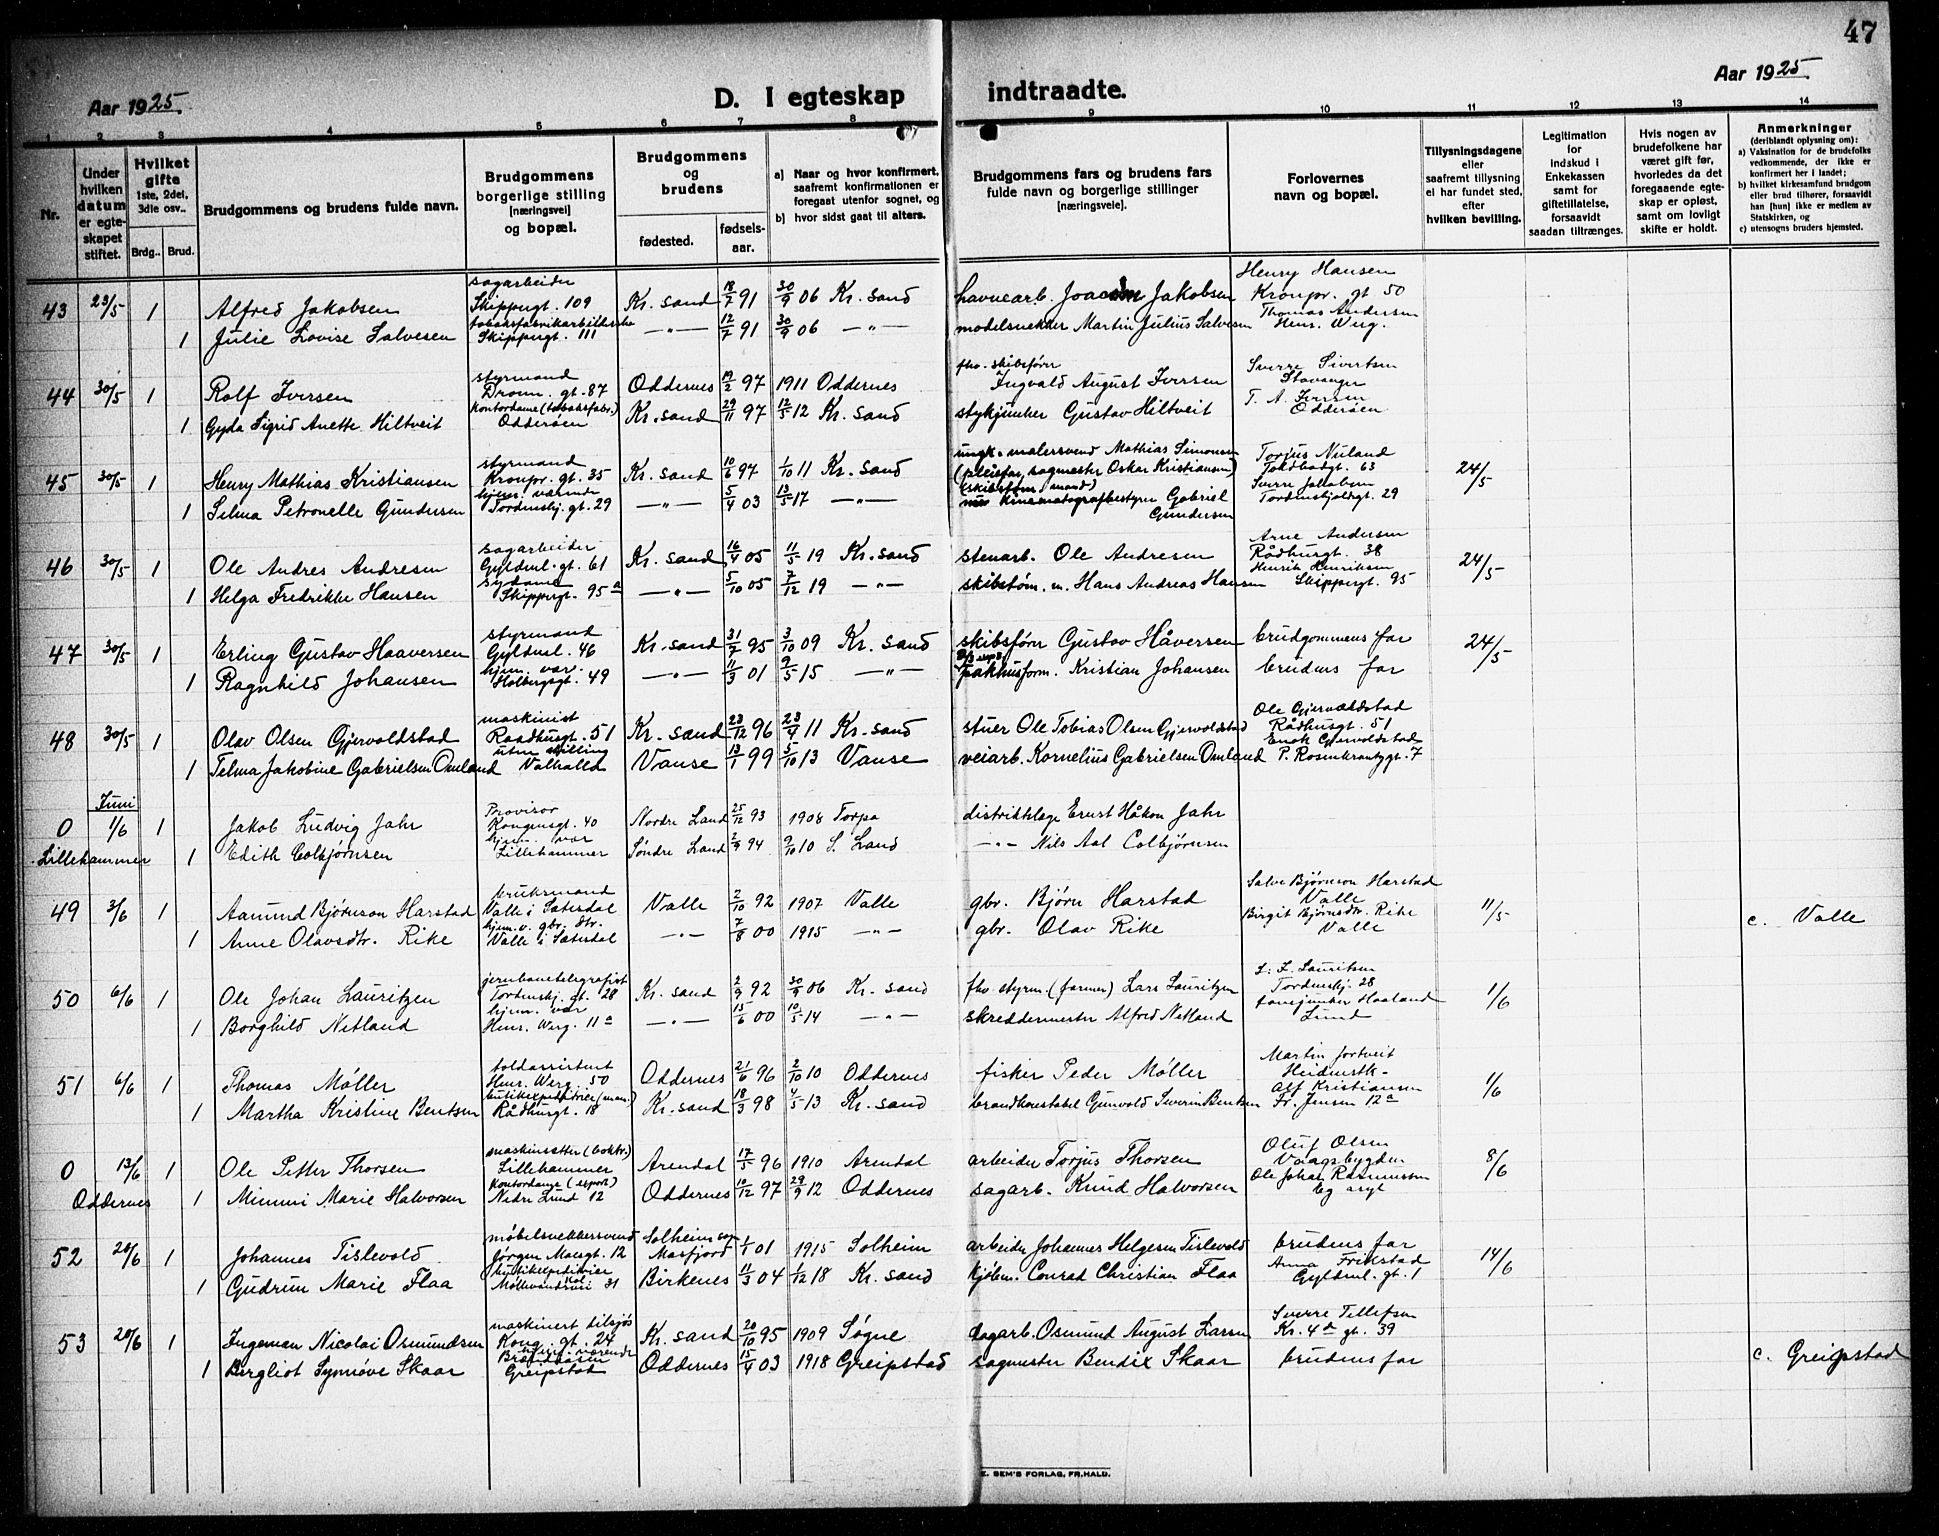 47
Aar 1925. D. I egteskap indtraadte. Aar 1925.
1 2 3 4 5 6 7 8 9 10 11 12 13 14
Nr.
Under hvilken datum er egteskapet stiftet.
Hvilket gifte 1ste, 2del, 3die osv..
Brdg.. Brud.
Brudgommens og brudens fulde navn.
Brudgommens borgerlige stilling [næringsvei] og bopæl.
Brudgommens og brudens
fødested. fødsels-aar.
a) Naar og hvor konfirmert, saafremt konfirmationen er foregaat utenfor sognet, og
b) hvor sidst gaat til alters.
Brudgommens fars og brudens fars fulde navn og borgerlige stillinger [næringsveie].
Forlovernes navn og bopæl.
Tillysningsdagene eller saafremt tillysning ei har fundet sted, efter hvilken bevilling.
Legitimation for indskud i Enkekassen samt for giftetillatelse, forsaavidt saadan tiltrænges.
Hvis nogen av brudefolkene har været gift før, hvorledes da det foregaaende egteskap er opløst, samt om lovligt skifte er holdt.
Anmerkninger (deriblandt oplysning om):
a) Vaksination for de brudefolks vedkommende, der ikke er konfirmert her i landet;
b) hvilket kirkesamfund brudgom eller brud tilhører, forsaavidt han [hun] ikke er medlem av Statskirken, og
c) utensogns bruders hjemsted.
43 23/5 1 Alfred Jakobsen sagarbeider Skippergt. 109 Kr. sand 18/7 91 30/9 06 Kr. sand havnearb. Joachim Jakobsen Henry Hansen Kronpr. gt 50
1 Julie Lovise Salvesen tobaksfabrikarbeiderske Skippergt. 111 —"— 12/7 91 30/9 06 —"— modelsnekker Martin Julius Salvesen Thomas Andersen Henr. Werg.
44 30/5 1 Rolf Iversen styrmand Dronn. gt. 87 Oddernes 19/2 97 1911 Oddernes fhv. skibsfører Ingvald August Iversen Sverre Sivertsen Stavanger
1 Gyda Sigrid Anette Hiltveit Kontordame (tobaksfabr.) Odderøen Kr. sand 29/11 97 12/5 12 Kr. sand stykjunker Gustav Hiltveit T. A. Iversen Odderøen
45 30/5 1 Henry Mathias Kristiansen styrmand Kronpr. gt. 35 Kr. sand 10/6 97 1/10 11 Kr. sand ungk. malersvend Mathias Simonsen (pleiefar sagmester Oskar Kristiansen) Torjus Nuland Toldbodgt. 63 24/5
1 Selma Petronelle Gundersen hjem. værende Tordenskj. gt. 29 —"— 5/4 03 13/5 17 —"— (skibstøm. mand) kinematografbestyrer Gabriel Gundersen Sverre Jakobsen Tordenskjoldgt. 29
46 30/5 1 Ole Andres Andresen sagarbeider Gyldnl. gt. 61 Kr. sand 16/4 05 11/5 19 Kr. sand stenarb. Ole Andresen Arne Andersen Rådhusgt. 38 24/5
1 Helga Fredrikke Hansen sydame Skippergt. 95 a —"— 5/10 05 7/12 19 —"— skibstøm. m. Hans Andreas Hansen Henrik Henriksen Skippergt. 95
47 30/5 1 Erling Gustav Haaversen styrmand Gyldnl. 46 Kr. sand 31/7 95 3/10 09 Kr. sand skibsfører Gustav Håversen brudgommens far 24/5
1 Ragnhild Johansen hjem. vær. Holbergsgt. 49 —"— 11/3 01 9/5 15 —"— pakhusform. Kristian Johansen brudens far
48 30/5 1 Olav Olsen Gjervoldstad maskinist Raadhusgt. 51 Kr. sand 23/12 96 23/4 11 Kr. sand stuer Ole Tobias Olsen Gjervoldstad Ole Gjervoldstad Rådhusgt. 51
1 Telma Jakobine Gabrielsen Omland uten stilling Valhalla Vanse 13/1 99 5/10 13 Vanse veiarb. Kornelius Gabrielsen Omland Enok Gjervoldstad P. Rosenkrantzgt. 7
Juni
0 1/6 1 Jakob Ludvig Jahr Provisor Kongensgt. 40 Nordre Land 25/12 93 1908 Torpa distriktslæge Ernst Håkon Jahr
Lillehammer 1 Edith Colbjørnsen hjem. vær Lillehammer Søndre Land 2/9 94 9/10 10 S. Land —"— Nils Aal Colbjørnsen
49 3/6 1 Aamund Bjørnson Harstad bruksmand Valle i Sætesdal Valle 2/10 92 1907 Valle gbr. Bjørn Harstad Salve Bjørnson Harstad Valle 11/5
1 Anne Olavsdtr. Rike hjem. v. gbr. dtr. Valle i Sætesdal —"— 7/8 00 1915 —"— gbr. Olav Rike Birgit Bjørnsdtr. Rike Valle c. Valle
50 6/6 1 Ole Johan Lauritzen jernbanetelegrafist Tordenskj. gt. 28 Kr. sand 2/9 92 30/9 06 Kr. sand fhv. styrm. (farmer) Lars Lauritzen L. F. Lauritsen Tordenskj. 28 1/6
1 Borghild Netland hjem. vær Henr. Werg. 11 a —"— 15/6 00 10/5 14 —"— skreddermester Alfred Netland fanejunker Haaland Lund
51 6/6 1 Thomas Møller toldassistent Henr. Werg. 50 Oddernes 21/6 96 2/10 10 Oddernes fisker Peder Møller Martin Jortveit Heidmstk- 1/6
1 Martha Kristine Bentsen butikexpeditrice (man.) Rådhusgt. 18 Kr. sand 18/3 98 4/5 13 Kr. sand brandkonstabel Gunvald Severin Bentsen Alf Kristiansen Fr. Jensen 12 a
0 13/6 1 Ole Petter Thorsen maskinsætter (boktr.) Lillehammer Arendal 17/5 96 1910 Arendal arbeider Torjus Thorsen Oluf Olsen Vaagsbygden 8/6
Oddernes 1 Mimmi Marie Halvorsen Kontordame (export) Nedr. Lund 12 Oddernes 10/12 97 29/9 12 Oddernes sagarb. Knud Halvorsen Ole Johan Rasmussen Eg asyl
52 20/6 1 Johannes Tislevold møbelsnekkersvend Jørgen Moesgt. 12 Solheim sogn Masfjord 1/1 01 1915 Solheim arbeider Johannes Helgesen Tislevold brudens far 14/6
1 Gudrun Marie Flaa butikexpeditrice Møllevandsvei 31 Birkenes 11/3 04 1/12 18 Kr. sand kjølem. Conrad Christian Flaa Anna Frikstad Gyldnl. gt. 1
53 20/6 1 Ingeman Nicolai Osmundsen maskinert tilsjøs Kong. gt. 24 Kr. sand 20/10 95 1909 Søgne dagarb. Osmund August Larsen Sverre Tellefsen Kr. 4de gt. 39
1 Bergliot Synnøve Skaar hjem. værende Greipstad Oddernes 15/4 03 1918 Greipstad sagmester Bendix Skaar brudens far c. Greipstad
E. SEM'S FORLAG, FR.HALD.